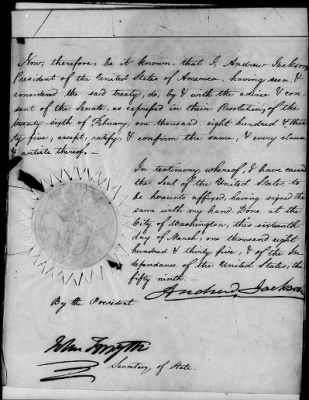 Now, therefore, be it known, that I, Andrew Jackson,
President of the United States of America, having seen, &
considered the said treaty, do, by & with the advice & con-
sent of the Senate, as expressed in their Resolution, of the
twenty sixth of February, one thousand eight hundred & thir-
ty five, accept, ratify, & confirm the same, & every clause
& article thereof.—
In testimony whereof, I have caused
the Seal of the United States to
be hereunto affixed, having signed the
same with my hand. Done at the
City of Washington, this sixteenth
day of March, one thousand eight
hundred & thirty five, & of the In-
dependance of the United States, the
fifty ninth.—
Andrew Jackson
By the President
John Forsyth
Secretary, of State.